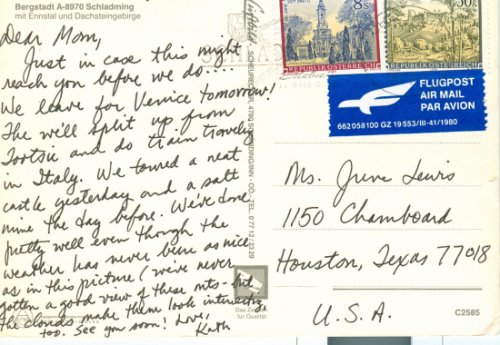 Bergstadt A-8970 Schladming
mit Ennstal und Dachsteingebirge
Dear Mom,
Just in case this might
reach you before we do...
We leave for Venice tomorrow!
The we'll split up from
Tootsie and do train traveling
in Italy. We toured a neat
castle yesterday and a salt
mine the day before. We've done
pretty well even though the
weather has never been as nice
as in this picture (we've never
gotten a good view of these mts-but
the clouds make them look interesting,
too. See you soon! Love,
Kath
REPUBLIK ÖSTERREICH
REPUBLIK ÖSTERREICH
FLUGPOST
AIR MAIL
PAR AVION
662 058 100 GZ 19 553/III-41/1980
Ms. June Lewis
1150 Chamboard
Houston, Texas 77018
U.S.A.
Das Zeichen
für Qualität
C2585